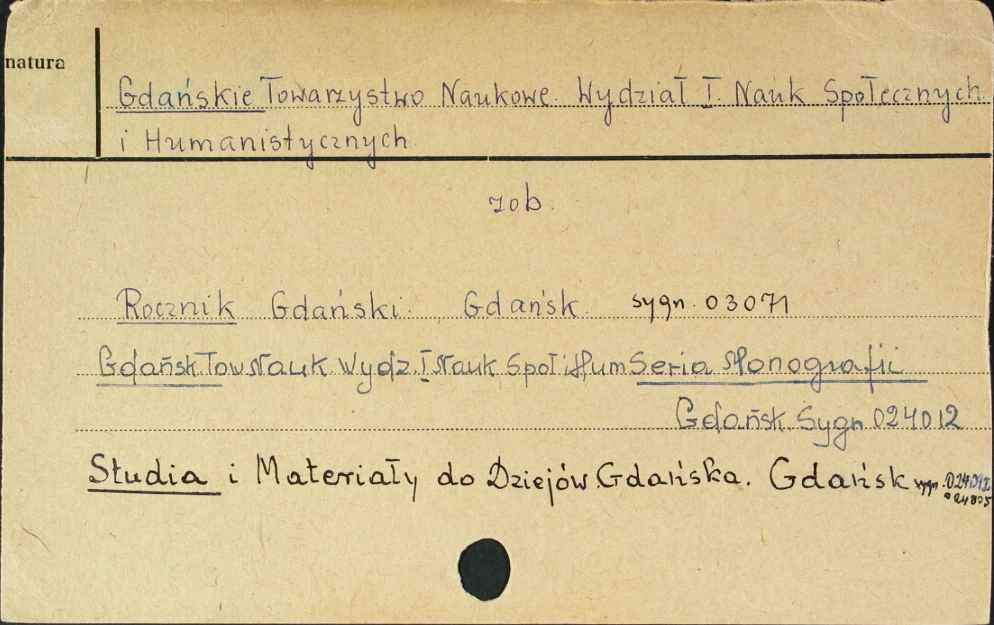 natura
Gdańskie Towarzystwo Naukowe. Wydział I. Nauk Społecznych
i Humanistycznych
zob.
Rocznik Gdański. Gdańsk. sygn. 03071
Gdańsk.Tow.Nauk. Wydz. I Nauk Społ.i Hum Seria Monografii
Gdańsk. Sygn 024012
Studia i Materiały do Dziejów Gdańska. Gdańsk sygn.